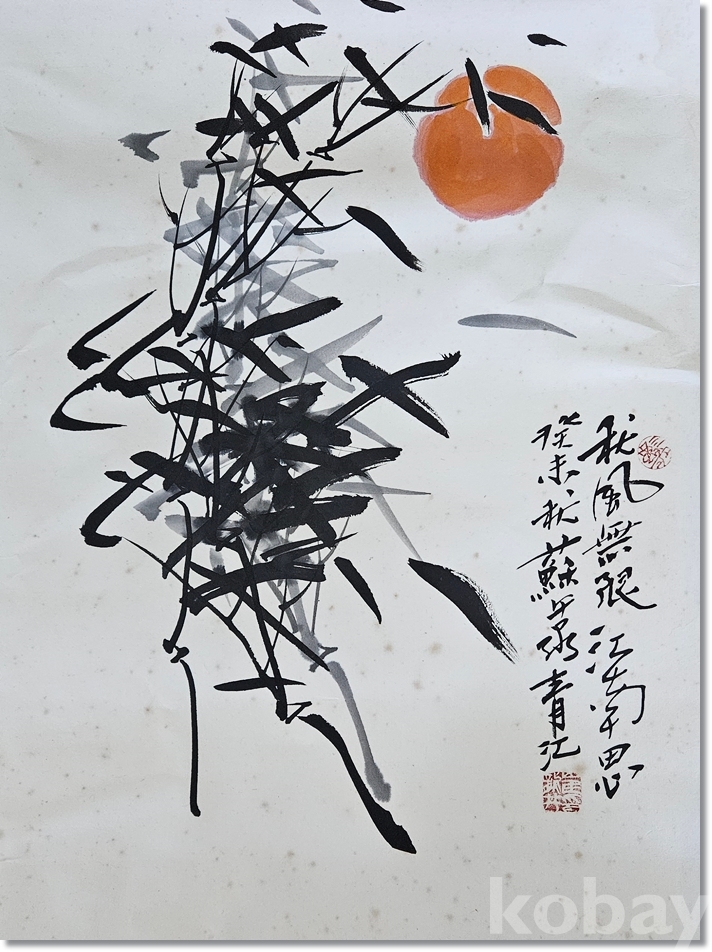 秋風無限江南思
癸未秋蘇 青江
kobay